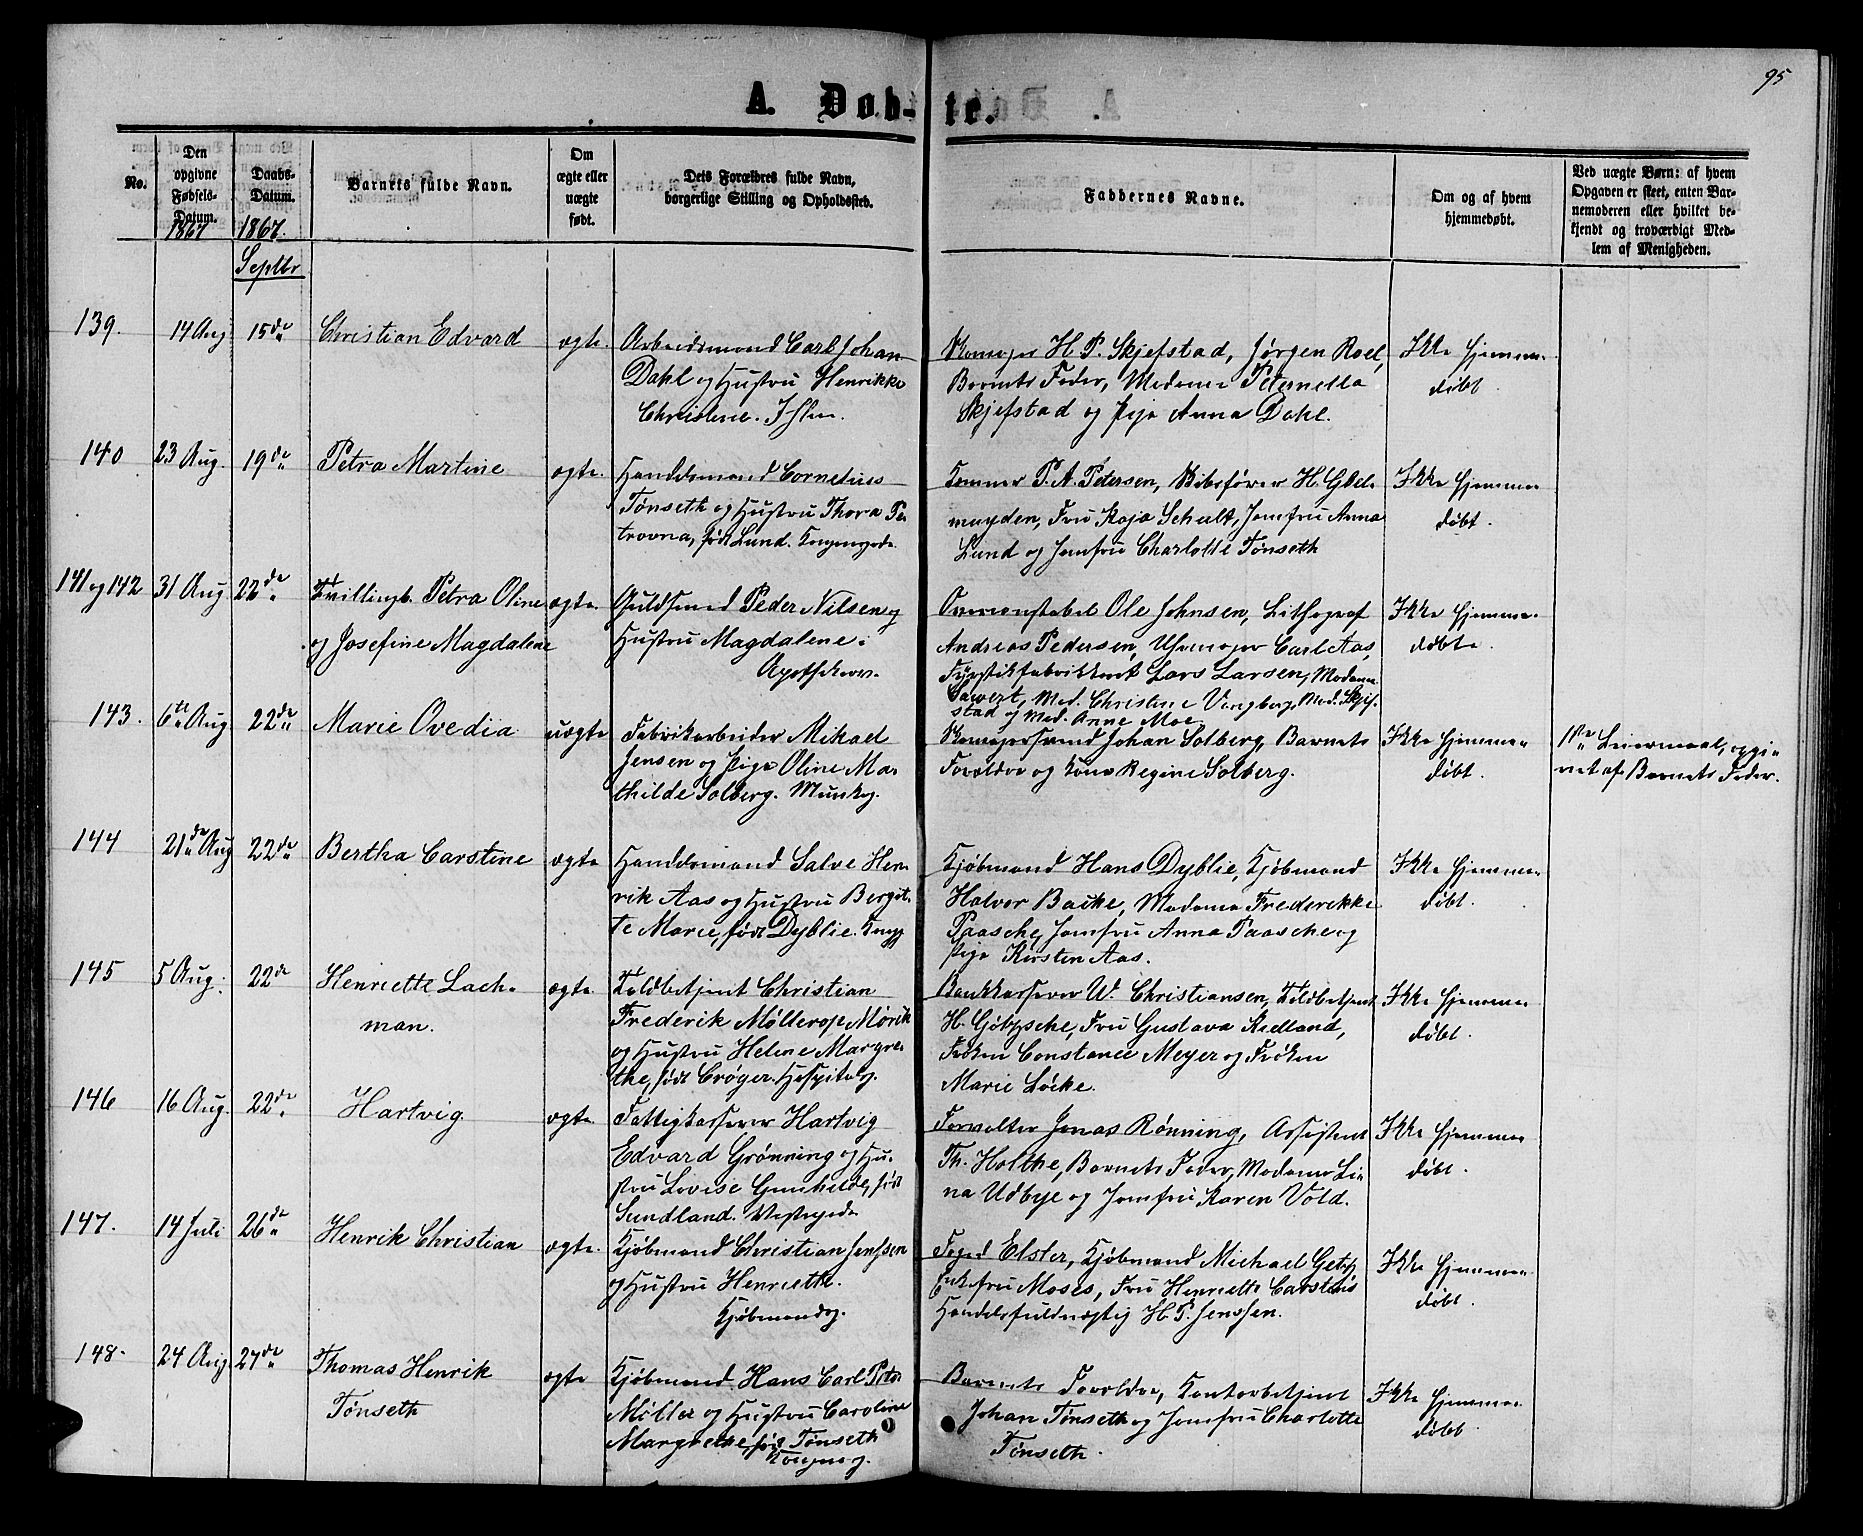 95
A. Døb-te.
No.
Den opgivne Fødsels-Datum.
Daabs-Datum.
Barnets fulde Navn.
Om ægte eller uægte født.
Dets Forældres fulde Navn, borgerlige Stilling og Opholdssted.
Faddernes Navne.
Om og af hvem hjemmedøbt.
Ved uægte Børn: af hvem Opgaven er skeet, enten Barnemoderen eller hvilket bekjendt og troværdigt Medlem af Menigheden.
1867 1867.
Septbr
139. 14 Aug 15de Christian Edvard ægte. Arbeidsmand Carl Johan
Dahl og Hustru Henrikke
Christine. Ihlen.
H. P. Skjefstad, Jørgen Roel,
Barnets Fader, Madame Peternella
Skjefstad og Pige Anna Dahl.
Ikke hjemme-
døbt.
140 23 Aug. 19de Petra Martine ægte. Handelsmand Cornelius
Tønseth og Hustru Thora Pe-
trovna, født Lund. Kongensgade.
P. A. Petersen, H. Glde-
Fru Kaja Schult, Jomfru Anna
Lund og Jomfru Charlotte Tønseth
Ikke hjemme-
døbt.
141 og 142 31 Aug 22de Tvillingb. Petra Oline
og Josefine Magdalene
ægte. Guldsmed Peder Nilsen og
Hustru Magdalene i
Ole Johnsen, Lithograf
Andreas Pedersen, Uhrmager Carl Aas,
Fyrstikfabrikkeut Lars Larsen, Madame
Mad. Christine Vingberg, Mad. Skjef-
stad og Mad. Anne Moe
Ikke hjemme-
døbte.
143. 6te Aug 22de Marie Ovedia uægte Fabrikarbeider Mikael
Jensen og Pige Oline Ma-
thilde Solberg. Munkeg.
Johan Solberg, Barnets
Forældre og Kone Regine Solberg.
Ikke hjemme-
døbt.
1ste Leiermaal, opgi-
vet af Barnets Fader.
144 21de Aug 22de Bertha Carstine ægte Handelsmand Salve Hen-
rik Aas og Hustru Bergit-
te Marie, født Dyblie.
Kjøbmand Hans Dyblie, Kjøbmand
Halvor Backe, Madame Frederikke
Paasche, Jomfru Anna Paasche og
Pige Kirsten Aas.
Ikke hjemme-
døbt.
145 5 Aug. 22de Henriette Lach-
man.
ægte. Toldbetjent Christian
Frederik Møllerop Mørik
og Hustru Helene Margre-
the, født Crøger. Hospitalsg.
Bankkasserer W. Christiansen, Toldbetjent
Fru Gustava Kielland,
Frøken Constance Meyer og Frøken
Marie Løcke.
Ikke hjemme-
døbt.
146 16 Aug. 22de Hartvig ægte. Fattigkasserer Hartvig
Edvard Grønning og Hu-
stru Lovise Gunhilde, født
Sundland.
Forvalter Jonas Rønning, Assistent
Th. Holthe, Barnets Fader, Madame Li-
na Udbye og Jomfru Karen Vold.
Ikke hjemme-
døbt.
147. 14 Juli 26de Henrik Christian ægte. Kjøbmand Christian Jenssen
og Hustru Henriette.
Kjøbmandsg.
Foged Elster, Kjøbmand Michael Getz,
Enkefru Moses, Fru Henriette Carstens
Handelsfuldmægtig H. P. Jenssen.
Ikke hjemme-
døbt.
148. 24 Aug. 27de Thomas Henrik
Tønseth
ægte Kjøbmand Hans Carl Peter
Møller og Hustru Caroline
Margrethe, født Tønseth
Kongensg.
Barnets Forældre, Kontorbetjent
Johan Tønseth og Jomfru Charlotte
Tønseth.
Ikke hjemme-
døbt.